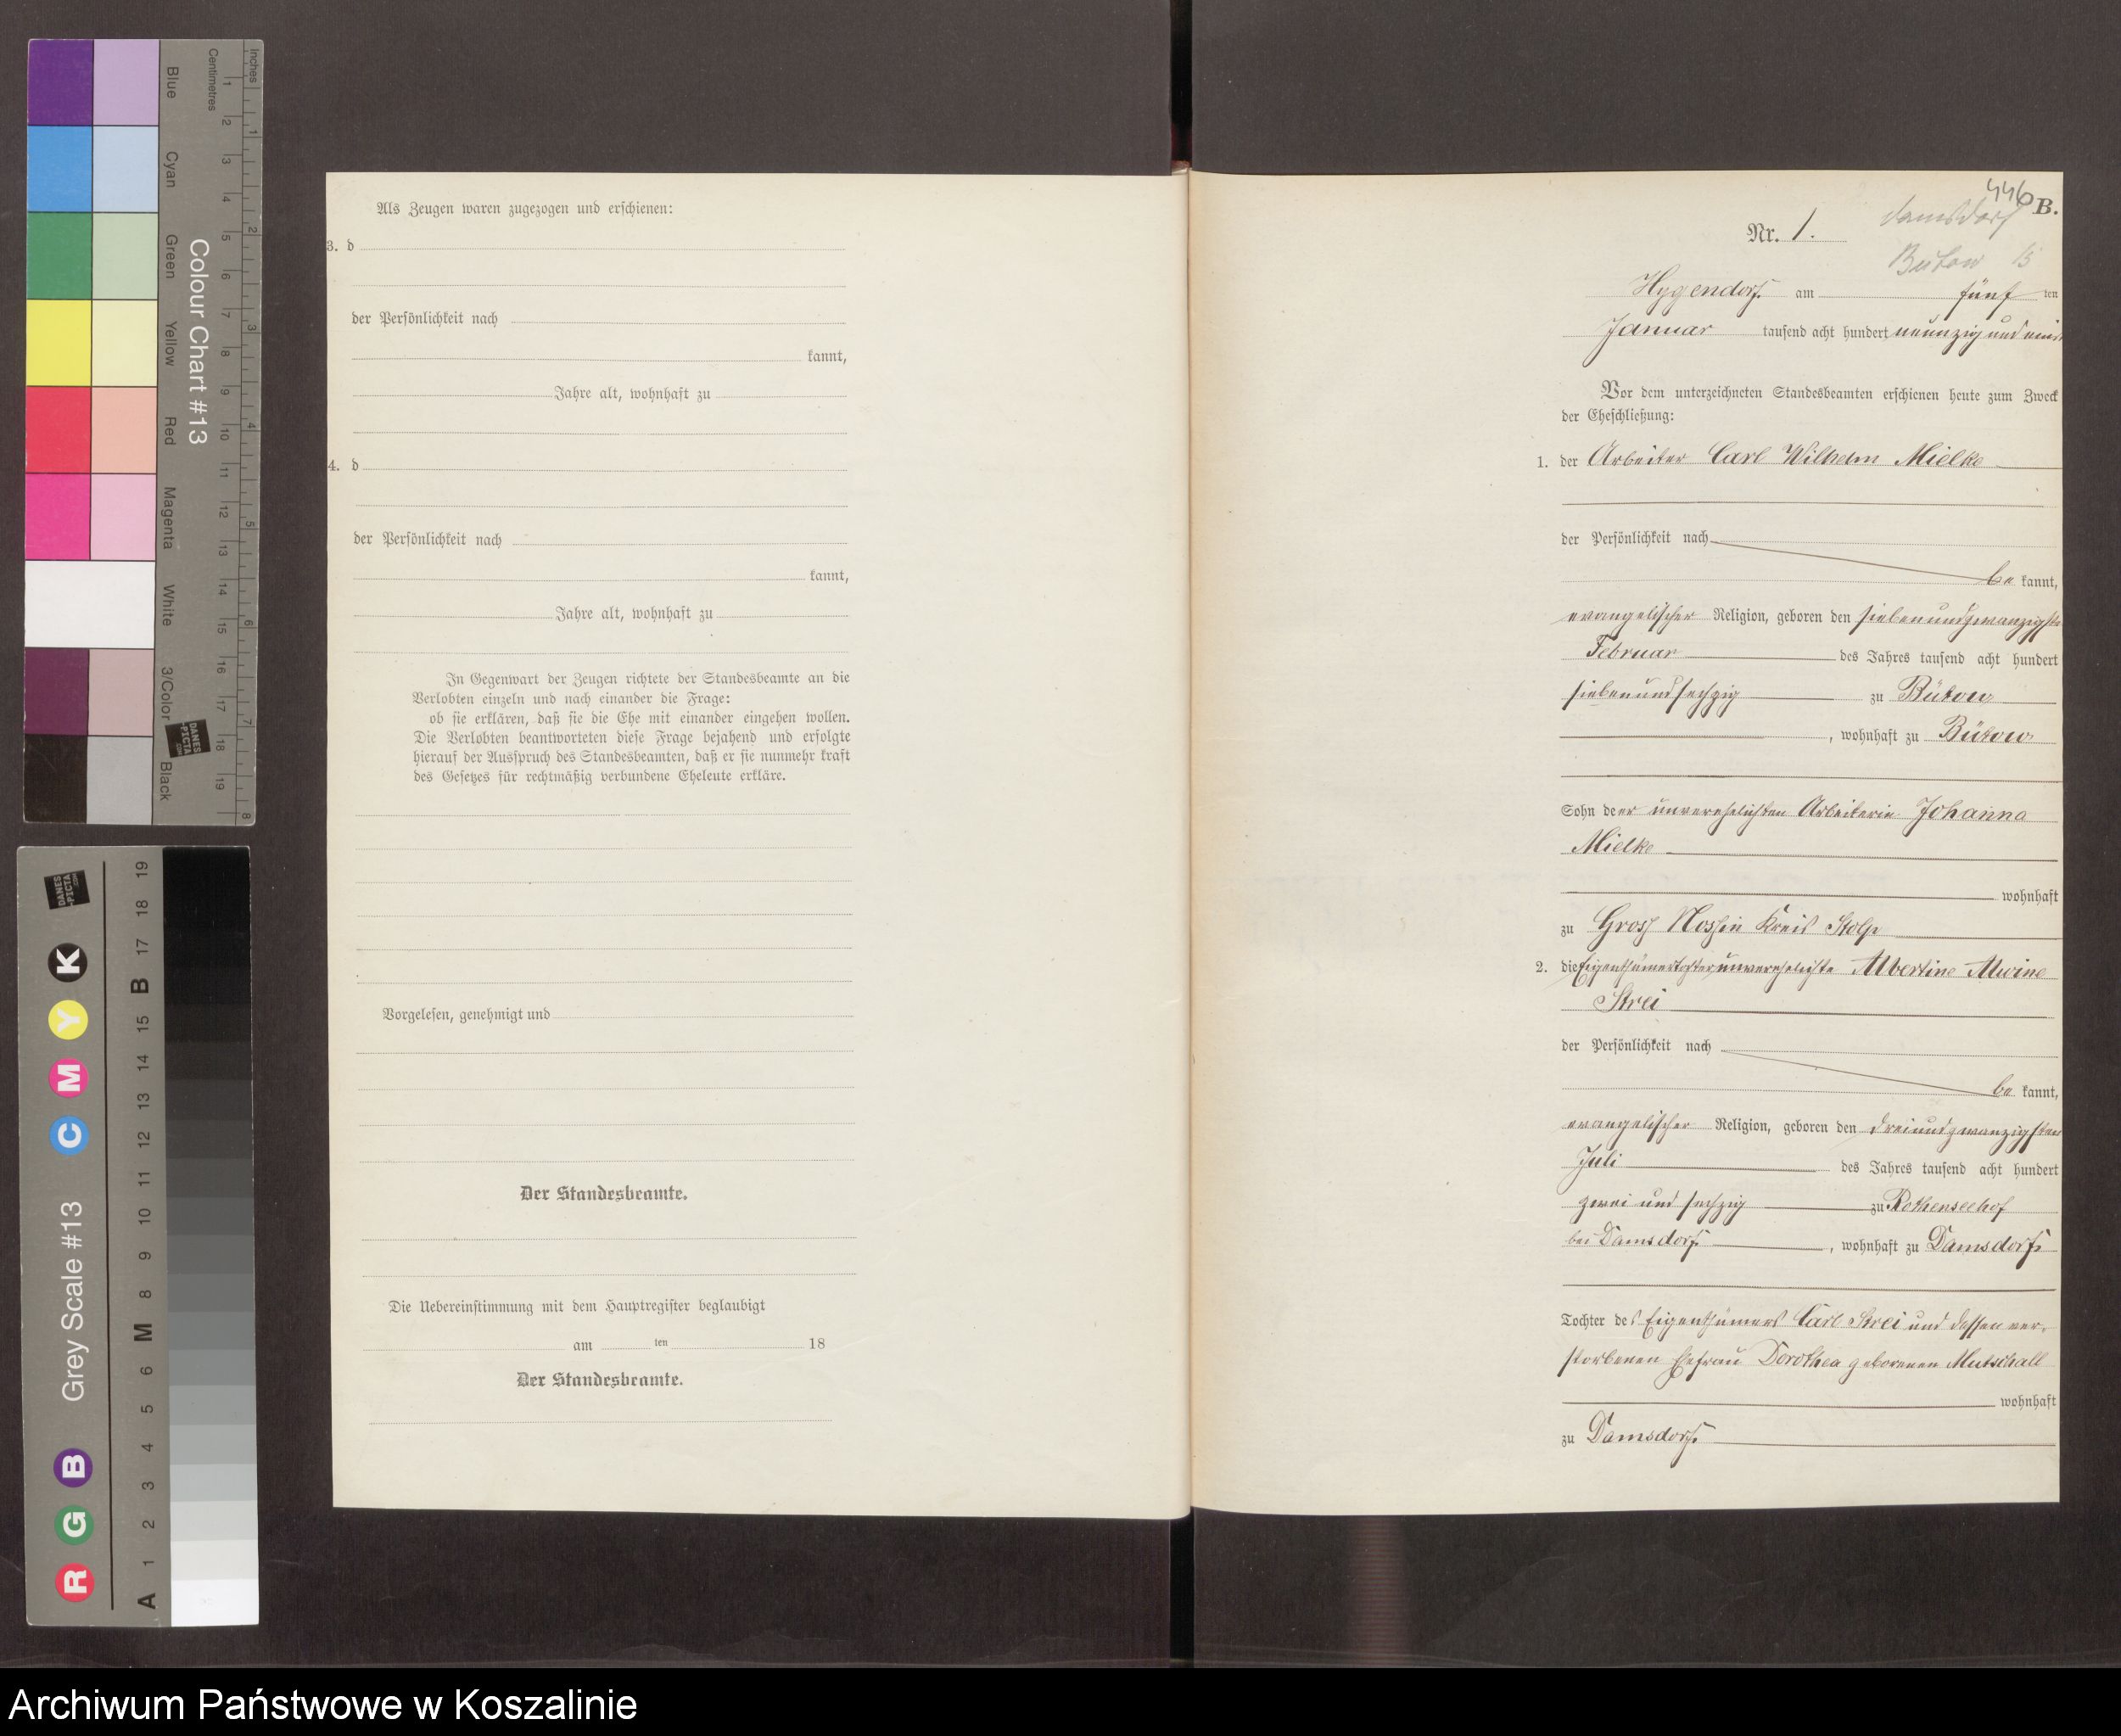 Blue
Cyan
Green
Yellow
Red
Magenta
White
3/Color
Black
Colour Chart #13
Centimetres
Inches
1 2 3 4 5 6 7 8 9 10 11 12 13 14 15 16 17 18 19
1 2 3 4 5 6 7 8
DANES
PICTA
.COM
Grey Scale #13
R G B C M Y K
A 1 2 3 4 5 6 M 8 9 10 11 12 13 14 15 B 17 18 19
DANES
PICTA
.COM
Als Zeugen waren zugezogen und erschienen:
3. d
der Persönlichkeit nach
kannt,
Jahre alt, wohnhaft zu
4. d
der Persönlichkeit nach
kannt,
Jahre alt, wohnhaft zu
In Gegenwart der Zeugen richtete der Standesbeamte an die
Verlobten einzeln und nach einander die Frage:
ob sie erklären, daß sie die Ehe mit einander eingehen wollen.
Die Verlobten beantworteten diese Frage bejahend und erfolgte
hierauf der Ausspruch des Standesbeamten, daß er sie nunmehr kraft
des Gesetzes für rechtmäßig verbundene Eheleute erkläre.
Vorgelesen, genehmigt und
Der Standesbeamte.
Die Uebereinstimmung mit dem Hauptregister beglaubigt
am ten 18
Der Standesbeamte.
446
B.
Damsdorf
Nr. 1.
Bütow
Hygendorf am fünf ten
Januar tausend acht hundert neunzig und eins
Vor dem unterzeichneten Standesbeamten erschienen heute zum Zweck
der Eheschließung:
1. der Arbeiter Carl Wilhelm Mielke
der Persönlichkeit nach
be kannt,
evangelischer Religion, geboren den siebenundzwanzigsten
Februar des Jahres tausend acht hundert
siebenundsechzig zu Bütow
, wohnhaft zu Bütow
Sohn der unverehelichten Arbeiterin Johanna
Mielke
wohnhaft
zu Gross Nossin Kreis Stolp
2. die Eigenthümertochter unverehelichte Albertine Alwine
Strei
der Persönlichkeit nach
be kannt,
evangelischer Religion, geboren den dreiundzwanzigsten
Juli des Jahres tausend acht hundert
zwei und sechzig zu Rothenseehof
bei Damsdorf , wohnhaft zu Damsdorf
Tochter des Eigenthümers Carl Strei und dessen ver-
storbenen Ehefrau Dorothea geborenen Mutschall
wohnhaft
zu Damsdorf
Archiwum Państwowe w Koszalinie